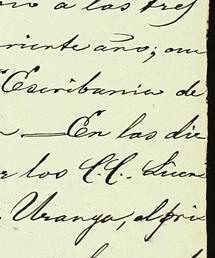 a las tres
riente año; que
Escribania de
En las die
los C.C. Lucas
Uranga, el pri